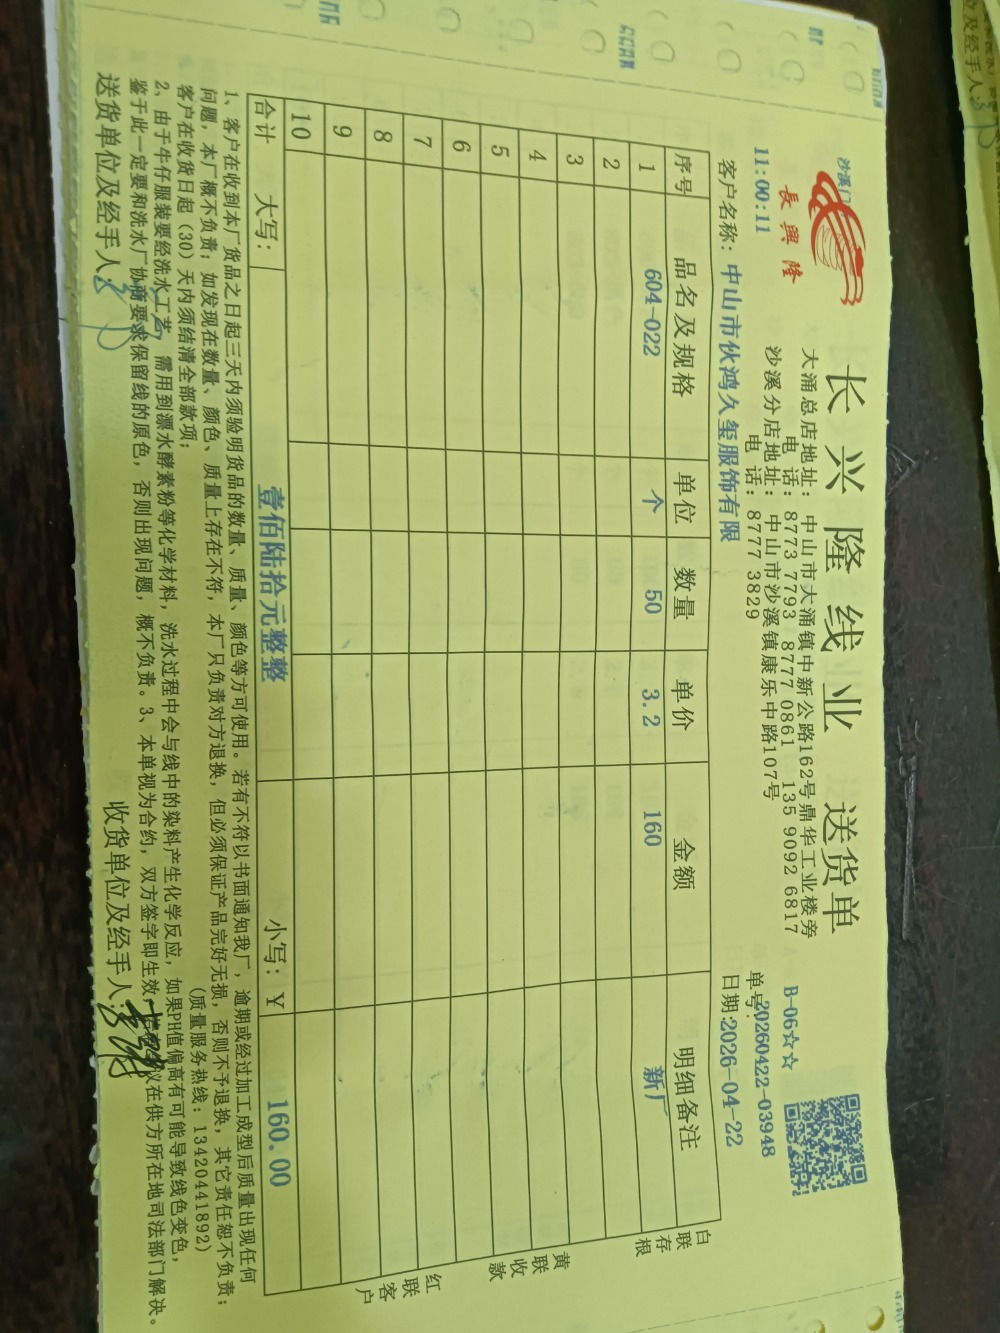 長興隆
长兴隆线业 送货单
沙溪门
大涌总店地址：中山市大涌镇中新公路162号鼎华工业楼旁
电 话：8773 7793 8777 0861 135 9092 6817
沙溪分店地址：中山市沙溪镇康乐中路107号
电 话：8777 3829
B-06☆☆
11:00:11
单号:20260422-03948
客户名称：中山市伙鸿久玺服饰有限
日期:2026-04-22
序号 品名及规格 单位 数量 单价 金额 明细备注
1 604-022 个 50 3.2 160 新厂
2
3
4
5
6
7
8
9
10
合计 大写： 壹佰陆拾元整整 小写：￥ 160.00
白联存根
黄联收款
红联客户
1、客户在收到本厂货品之日起三天内须验明货品的数量、质量、颜色等方可使用。若有不符以书面通知我厂，逾期或经过加工成型后质量出现任何
问题，本厂概不负责；如发现在数量、颜色、质量上存在不符，本厂只负责对方退换，但必须保证产品完好无损，否则不予退换，其它责任恕不负责；
客户在收货日起（30）天内须结清全部款项； (质量服务热线：13420441892)
2、由于牛仔服装要经洗水工艺，需用到漂水酵素粉等化学材料，洗水过程中会与线中的染料产生化学反应，如果PH值偏高有可能导致线色变色，
鉴于此一定要和洗水厂协商要求保留线的原色，否则出现问题，概不负责。3、本单视为合约，双方签字即生效，若有争议在供方所在地司法部门解决。
送货单位及经手人： 收货单位及经手人：
位及经手人：